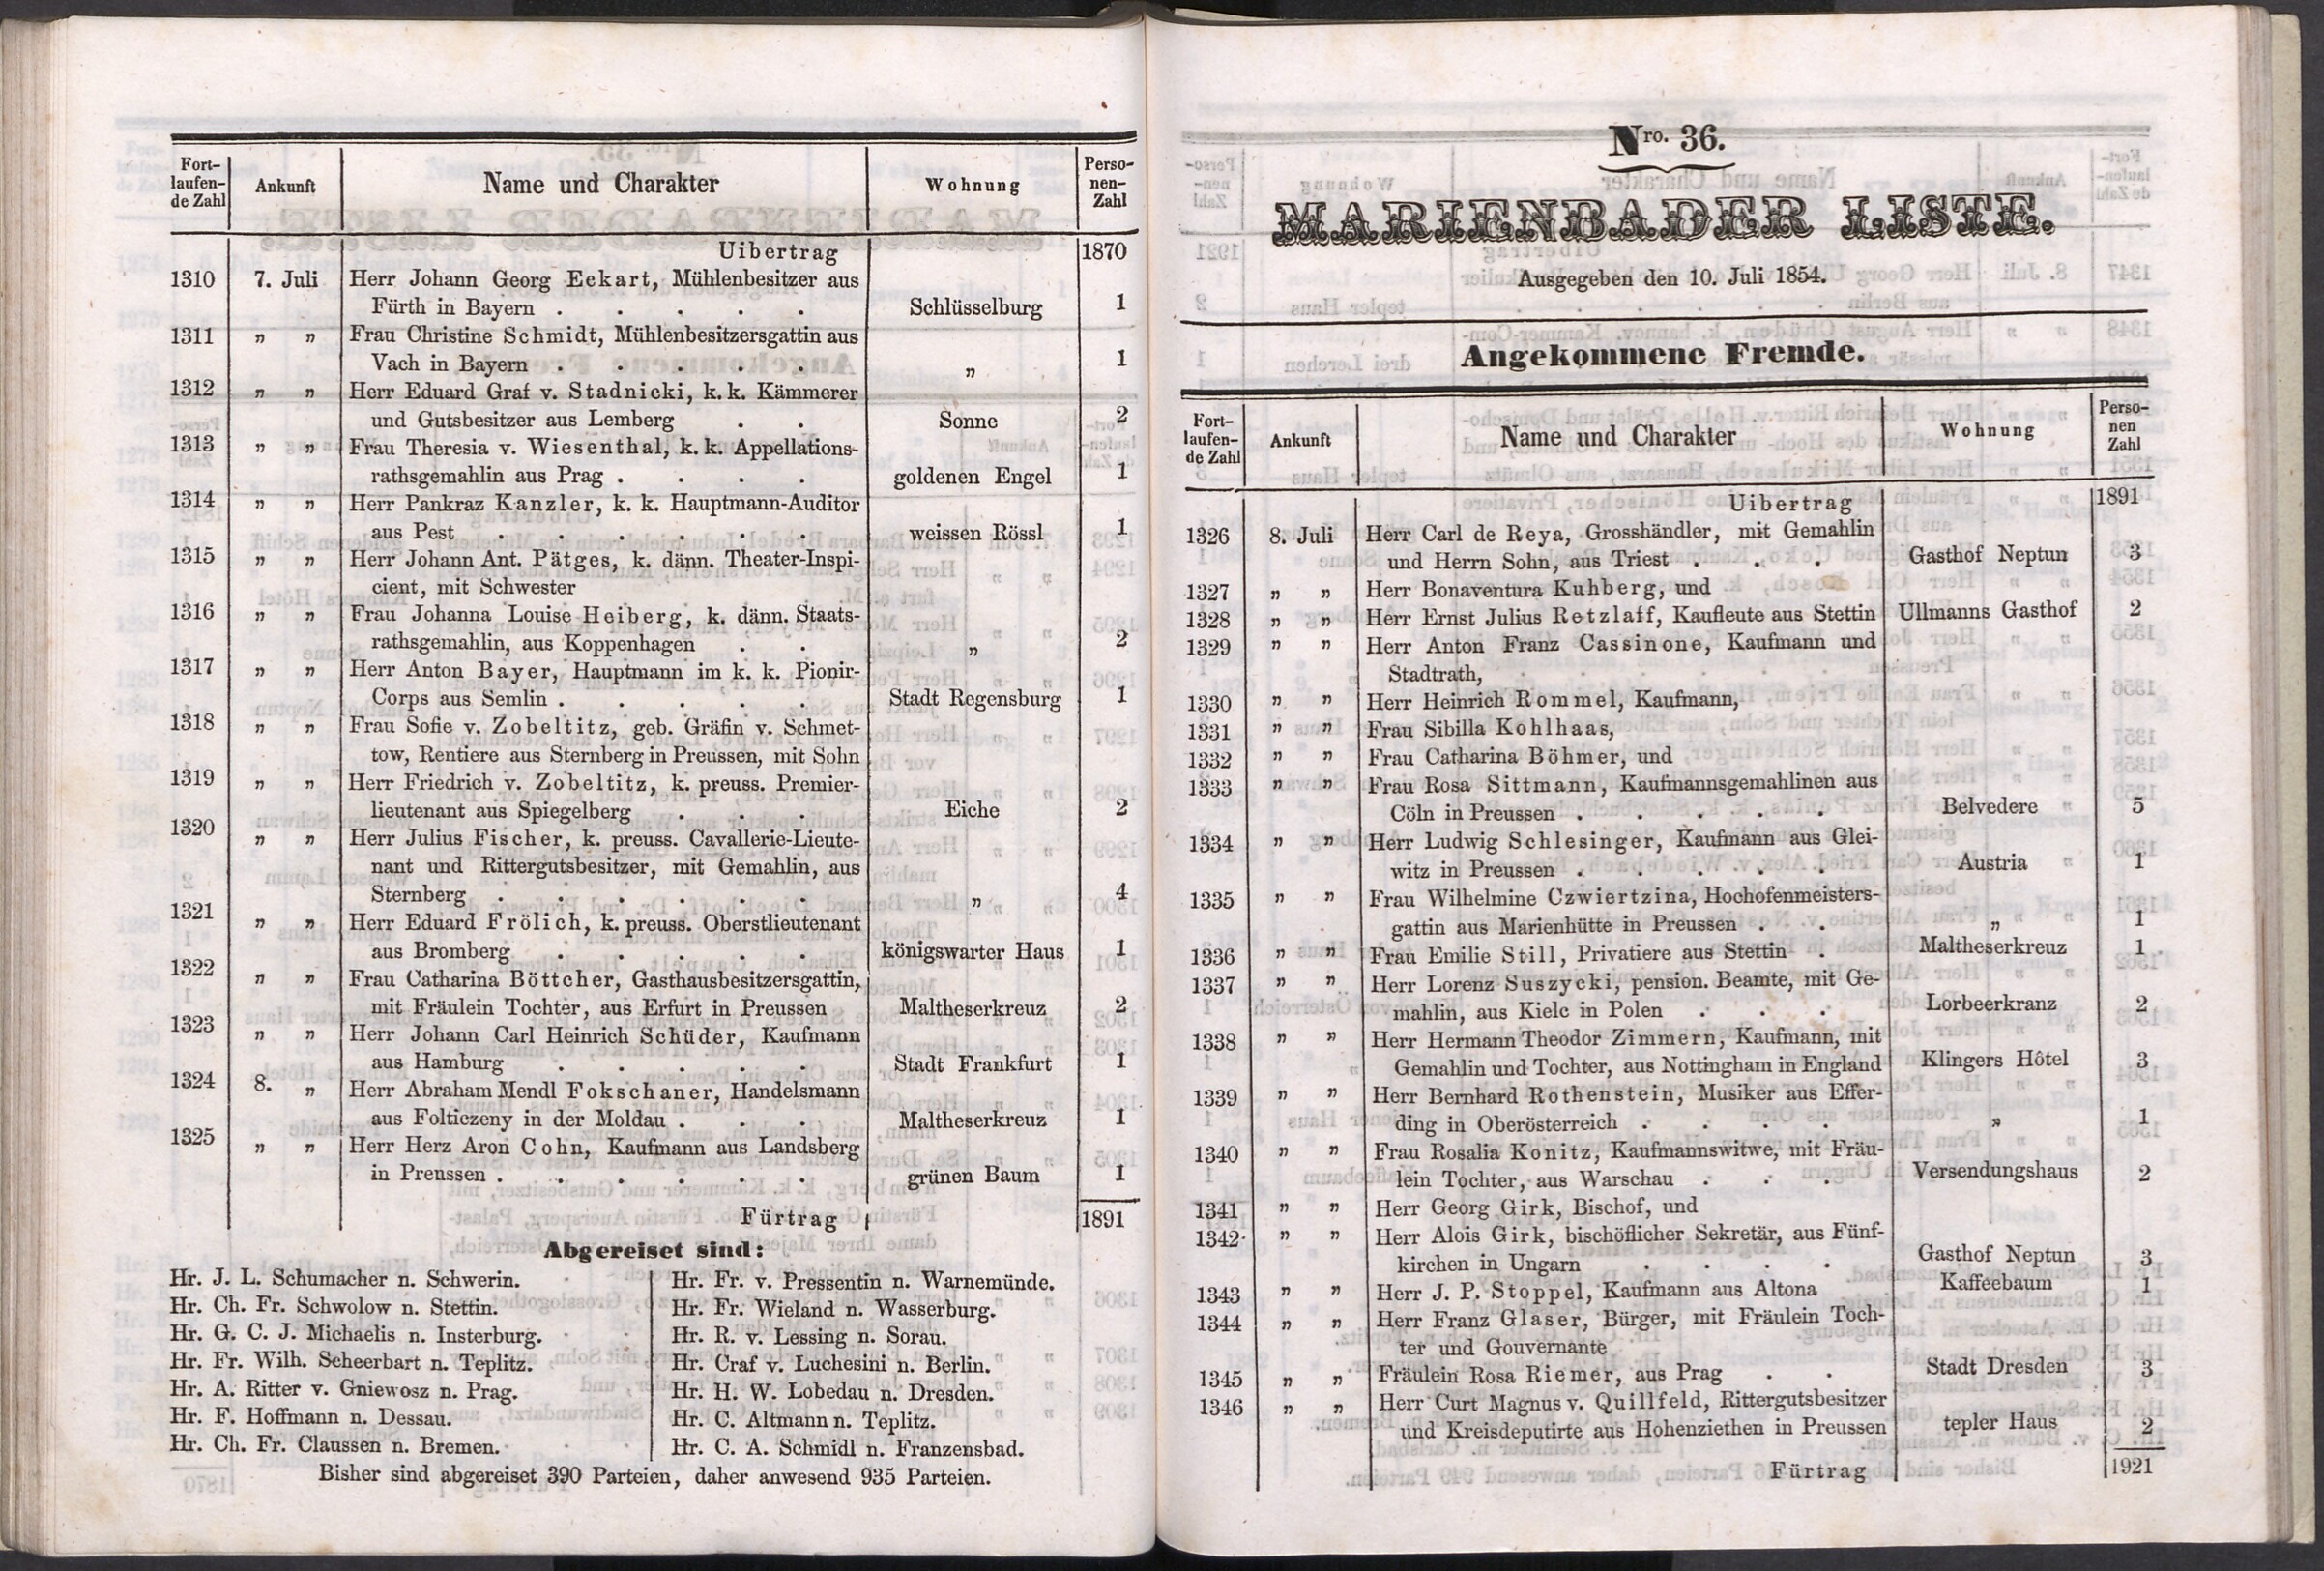 Fort-
laufen-
de Zahl
Ankunft
Name und Charakter
Wohnung
Perso-
nen-
Zahl
Uibertrag 1870
1310 7. Juli Herr Johann Georg Eckart, Mühlenbesitzer aus
Fürth in Bayern . . . . . Schlüsselburg 1
1311 „ „ Frau Christine Schmidt, Mühlenbesitzersgattin aus
Vach in Bayern . . . . . „ 1
1312 „ „ Herr Eduard Graf v. Stadnicki, k. k. Kämmerer
und Gutsbesitzer aus Lemberg . . Sonne 2
1313 „ „ Frau Theresia v. Wiesenthal, k. k. Appellations-
rathsgemahlin aus Prag . . . . goldenen Engel 1
1314 „ „ Herr Pankraz Kanzler, k. k. Hauptmann-Auditor
aus Pest . . . . . . weissen Rössl 1
1315 „ „ Herr Johann Ant. Pätges, k. dänn. Theater-Inspi-
cient, mit Schwester
1316 „ „ Frau Johanna Louise Heiberg, k. dänn. Staats-
rathsgemahlin, aus Koppenhagen . . „ 2
1317 „ „ Herr Anton Bayer, Hauptmann im k. k. Pionir-
Corps aus Semlin . . . . . Stadt Regensburg 1
1318 „ „ Frau Sofie v. Zobeltitz, geb. Gräfin v. Schmet-
tow, Rentiere aus Sternberg in Preussen, mit Sohn
1319 „ „ Herr Friedrich v. Zobeltitz, k. preuss. Premier-
lieutenant aus Spiegelberg . . . Eiche 2
1320 „ „ Herr Julius Fischer, k. preuss. Cavallerie-Lieute-
nant und Rittergutsbesitzer, mit Gemahlin, aus
Sternberg . . . . . . „ 4
1321 „ „ Herr Eduard Frölich, k. preuss. Oberstlieutenant
aus Bromberg . . . . . königswarter Haus 1
1322 „ „ Frau Catharina Böttcher, Gasthausbesitzersgattin,
mit Fräulein Tochter, aus Erfurt in Preussen Maltheserkreuz 2
1323 „ „ Herr Johann Carl Heinrich Schüder, Kaufmann
aus Hamburg . . . . . Stadt Frankfurt 1
1324 8. „ Herr Abraham Mendl Fokschaner, Handelsmann
aus Folticzeny in der Moldau . . . Maltheserkreuz 1
1325 „ „ Herr Herz Aron Cohn, Kaufmann aus Landsberg
in Prenssen . . . . . . grünen Baum 1
Fürtrag 1891
Abgereiset sind:
Hr. J. L. Schumacher n. Schwerin.
Hr. Ch. Fr. Schwolow n. Stettin.
Hr. G. C. J. Michaelis n. Insterburg.
Hr. Fr. Wilh. Scheerbart n. Teplitz.
Hr. A. Ritter v. Gniewosz n. Prag.
Hr. F. Hoffmann n. Dessau.
Hr. Ch. Fr. Claussen n. Bremen.
Hr. Fr. v. Pressentin n. Warnemünde.
Hr. Fr. Wieland n. Wasserburg.
Hr. R. v. Lessing n. Sorau.
Hr. Craf v. Luchesini n. Berlin.
Hr. H. W. Lobedau n. Dresden.
Hr. C. Altmann n. Teplitz.
Hr. C. A. Schmidl n. Franzensbad.
Bisher sind abgereiset 390 Parteien, daher anwesend 935 Parteien.
Nro. 36.
MARIENBADER LISTE.
Ausgegeben den 10. Juli 1854.
Angekommene Fremde.
Fort-
laufen-
de Zahl
Ankunft
Name und Charakter
Wohnung
Perso-
nen
Zahl
Uibertrag 1891
1326 8. Juli Herr Carl de Reya, Grosshändler, mit Gemahlin
und Herrn Sohn, aus Triest . . . Gasthof Neptun 3
1327 „ „ Herr Bonaventura Kuhberg, und
1328 „ „ Herr Ernst Julius Retzlaff, Kaufleute aus Stettin Ullmanns Gasthof 2
1329 „ „ Herr Anton Franz Cassinone, Kaufmann und
Stadtrath,
1330 „ „ Herr Heinrich Rommel, Kaufmann,
1331 „ „ Frau Sibilla Kohlhaas,
1332 „ „ Frau Catharina Böhmer, und
1333 „ „ Frau Rosa Sittmann, Kaufmannsgemahlinen aus
Cöln in Preussen . . . . . Belvedere 5
1334 „ „ Herr Ludwig Schlesinger, Kaufmann aus Glei-
witz in Preussen . . . . . Austria 1
1335 „ „ Frau Wilhelmine Czwiertzina, Hochofenmeisters-
gattin aus Marienhütte in Preussen . . „ 1
1336 „ „ Frau Emilie Still, Privatiere aus Stettin . Maltheserkreuz 1
1337 „ „ Herr Lorenz Suszycki, pension. Beamte, mit Ge-
mahlin, aus Kielc in Polen . . . Lorbeerkranz 2
1338 „ „ Herr Hermann Theodor Zimmern, Kaufmann, mit
Gemahlin und Tochter, aus Nottingham in England Klingers Hôtel 3
1339 „ „ Herr Bernhard Rothenstein, Musiker aus Effer-
ding in Oberösterreich . . . . „ 1
1340 „ „ Frau Rosalia Konitz, Kaufmannswitwe, mit Fräu-
lein Tochter, aus Warschau . . . Versendungshaus 2
1341 „ „ Herr Georg Girk, Bischof, und
1342 „ „ Herr Alois Girk, bischöflicher Sekretär, aus Fünf-
kirchen in Ungarn . . . . Gasthof Neptun 3
1343 „ „ Herr J. P. Stoppel, Kaufmann aus Altona Kaffeebaum 1
1344 „ „ Herr Franz Glaser, Bürger, mit Fräulein Toch-
ter und Gouvernante
1345 „ „ Fräulein Rosa Riemer, aus Prag . . Stadt Dresden 3
1346 „ „ Herr Curt Magnus v. Quillfeld, Rittergutsbesitzer
und Kreisdeputirte aus Hohenziethen in Preussen tepler Haus 2
Fürtrag 1921